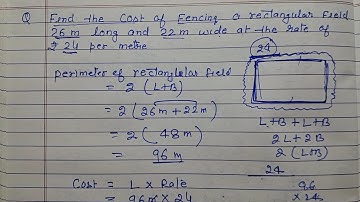 Q Find the Cost of Fencing a rectangular field
26 m long and 22 m wide at the rate of
₹ 24 per metre
24
perimeter of rectangular field
= 2 (L+B)
= 2 (26m + 22m)
= 2 (48m)
= 96 m
L+B + L+B
2L + 2B
2 (L+B)
24
Cost = L × Rate
= 96m × 24
96
× 24